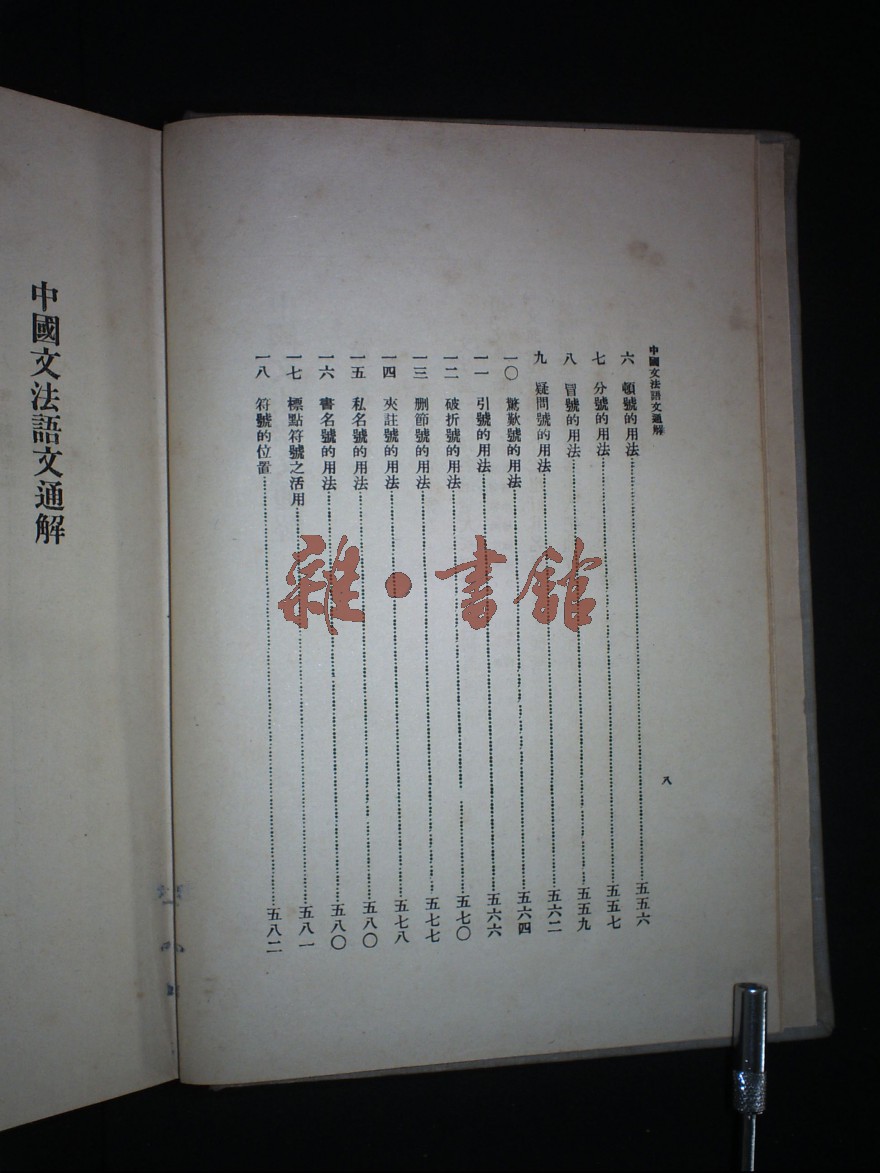 中國文法語文通解
八
六 頓號的用法……五五六
七 分號的用法……五五七
八 冒號的用法……五五九
九 疑問號的用法……五六二
一〇 驚歎號的用法……五六四
一一 引號的用法……五六六
一二 破折號的用法……五七〇
一三 刪節號的用法……五七七
一四 夾註號的用法……五七八
一五 私名號的用法……五八〇
一六 書名號的用法……五八〇
一七 標點符號之活用……五八一
一八 符號的位置……五八二
中國文法語文通解
雜·書館